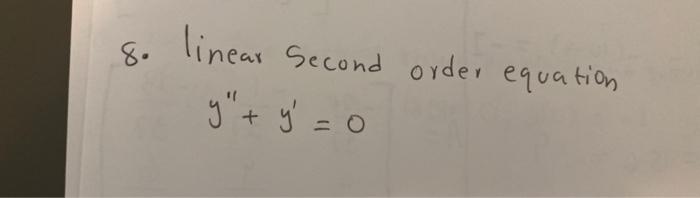 8. linear Second order equation
y" + y' = 0